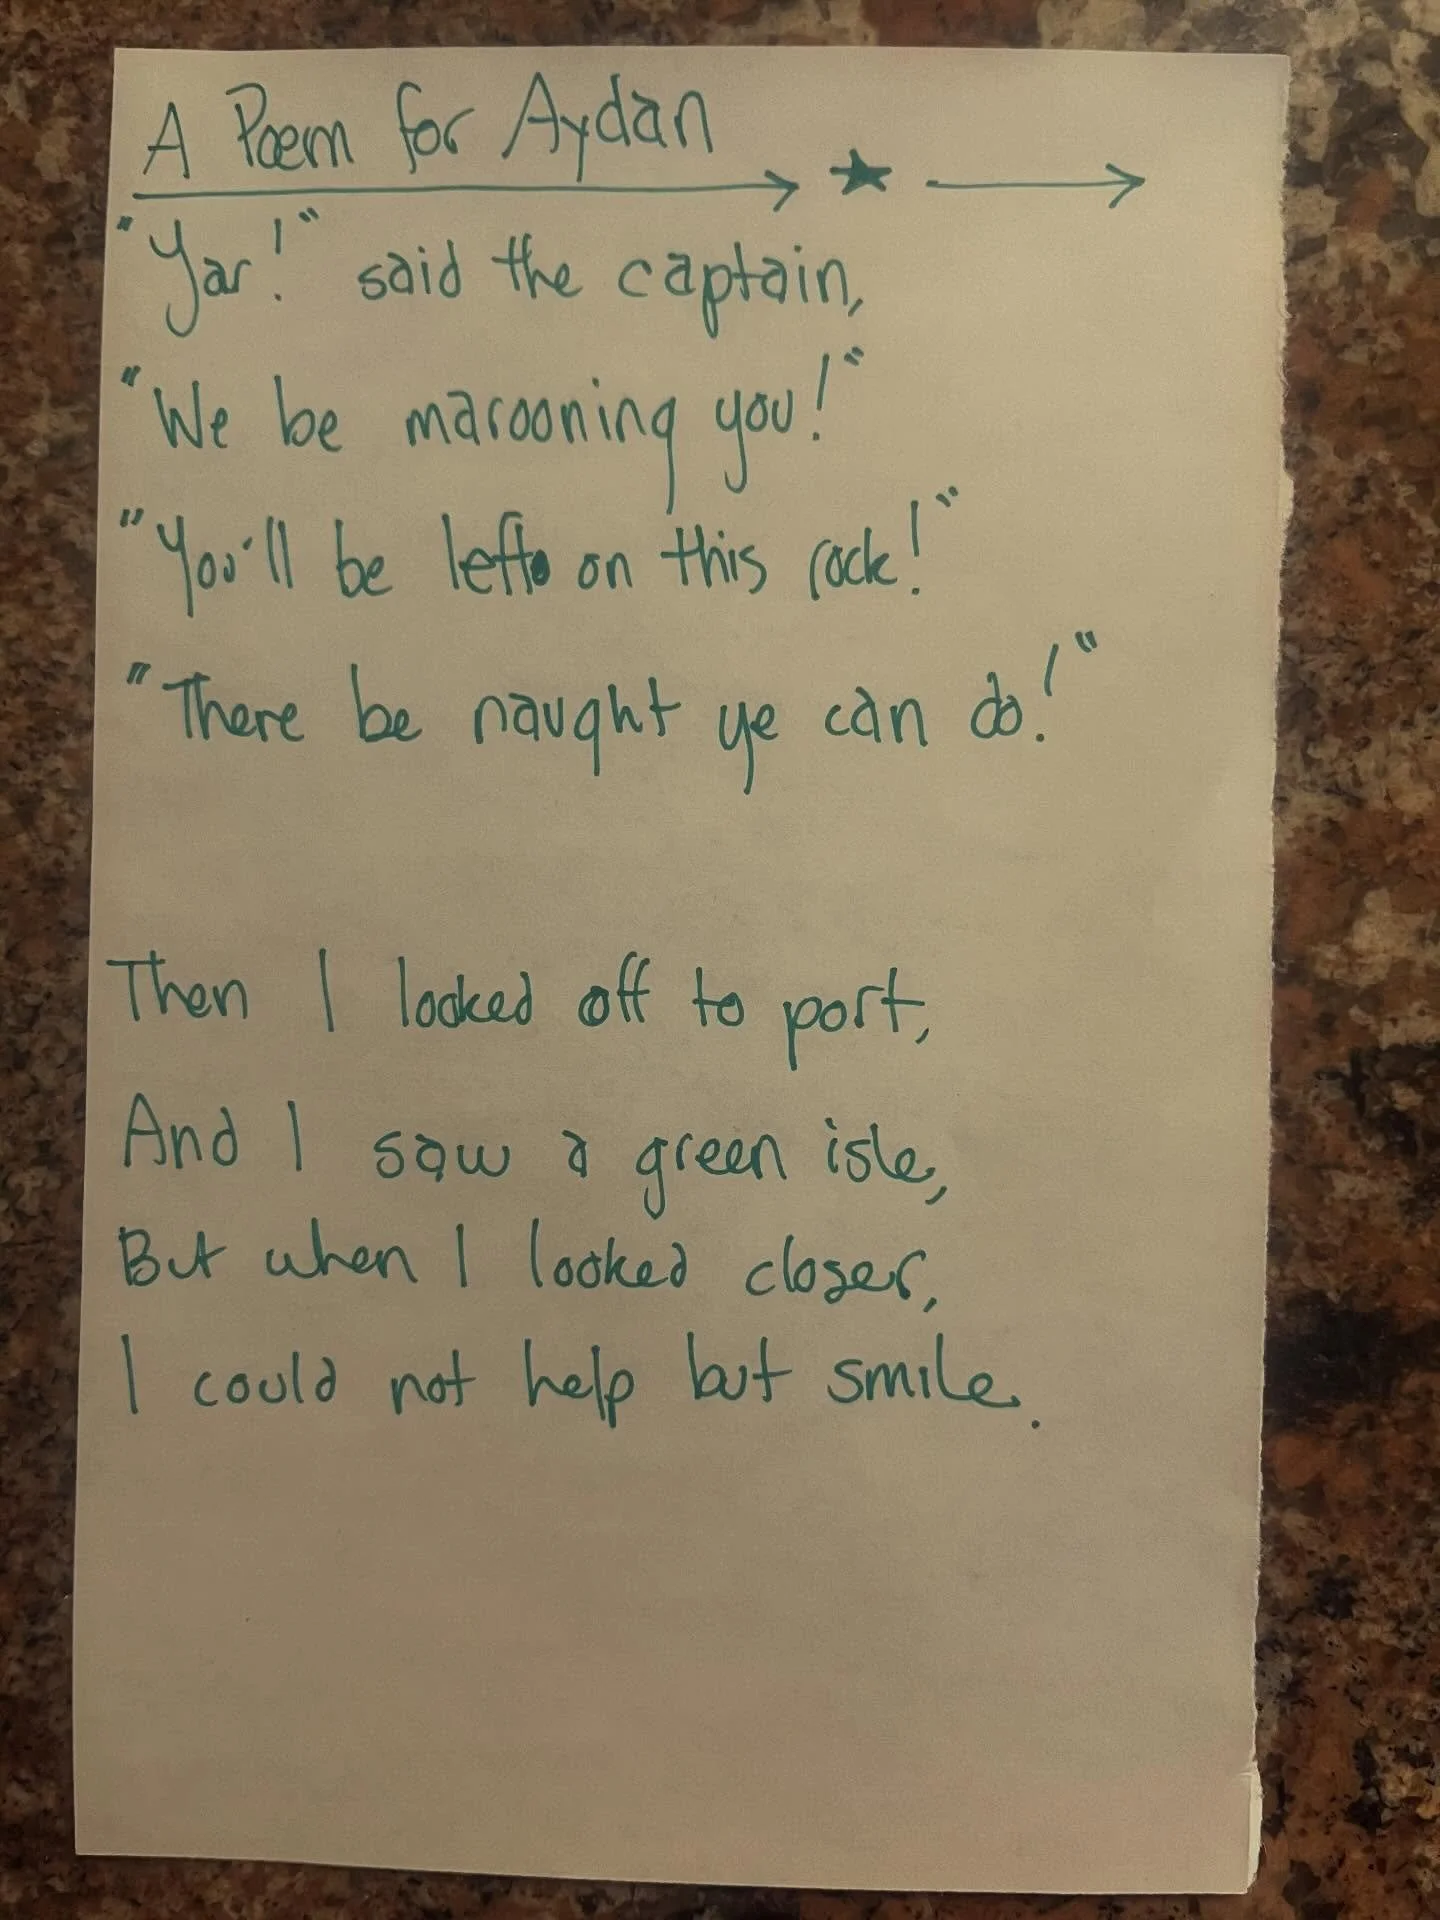 A Poem for Aydan
"Yar!" said the captain,
"We be marooning you!"
"You'll be left on this rock!"
"There be naught ye can do!"
Then I looked off to port,
And I saw a green isle,
But when I looked closer,
I could not help but smile.